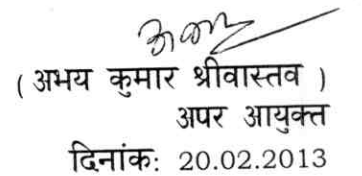 ( अभय कुमार श्रीवास्तव )
अपर आयुक्त
दिनांक: 20.02.2013